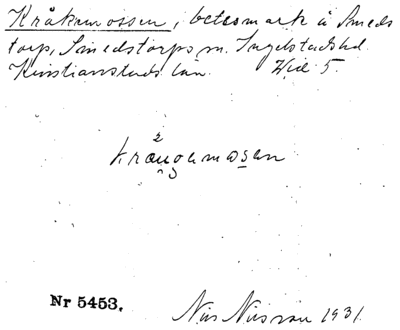 Kråkmossen, betesmark å Smeds
torp, Smedstorps sn. Ingelstads hd
Kristianstads län. Kid 5.
kräŋgamosen
Nr 5453.
Nils Nilsson 1931.